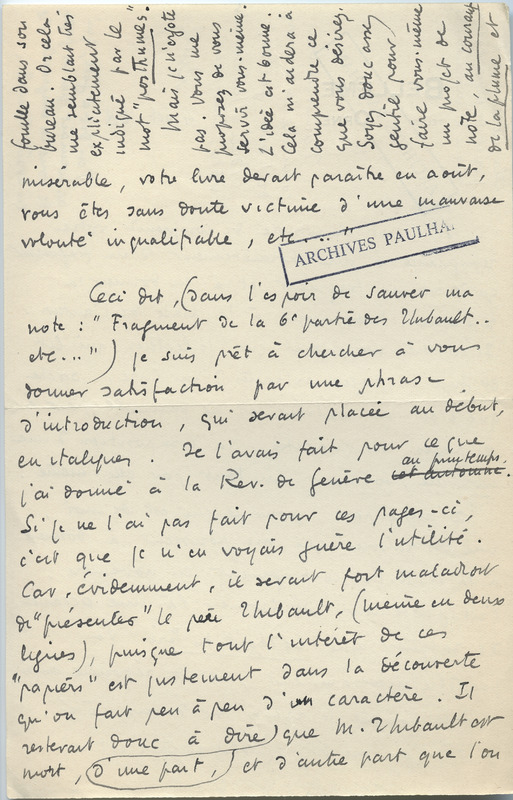 fouille dans son
bureau. Or cela
me semblait très
explicitement
indiqué par le
mot "posthumes".
Mais je n'ergote
pas. Vous me
proposez de vous
servir vous-même.
L'idée est bonne.
Cela m'aidera à
comprendre ce
que vous désirez.
Soyez donc assez
gentil pour
faire vous-même
un projet de
note au courant
de la plume et
misérable, votre livre devait paraître en août,
vous êtes sans doute victime d'une mauvaise
volonté inqualifiable, etc..."
ARCHIVES PAULHA
Ceci dit, (dans l'espoir de sauver ma
note : "Fragment de la 6e partie des Thibault..
etc...") je suis prêt à chercher à vous
donner satisfaction par une phrase
d'introduction, qui serait placée au début,
en italiques. Je l'avais fait pour ce que
au printemps.
j'ai donné à la Rev. de Genève cet automne.
Si je ne l'ai pas fait pour ces pages-ci,
c'est que je n'en voyais guère l'utilité.
Car, évidemment, il serait fort maladroit
de "présenter" le père Thibault, (même en deux
lignes), puisque tout l'intérêt de ces
"papiers" est justement dans la découverte
qu'on fait peu à peu d'un caractère. Il
resterait donc à dire que M. Thibault est
mort, d'une part, et d'autre part que l'on